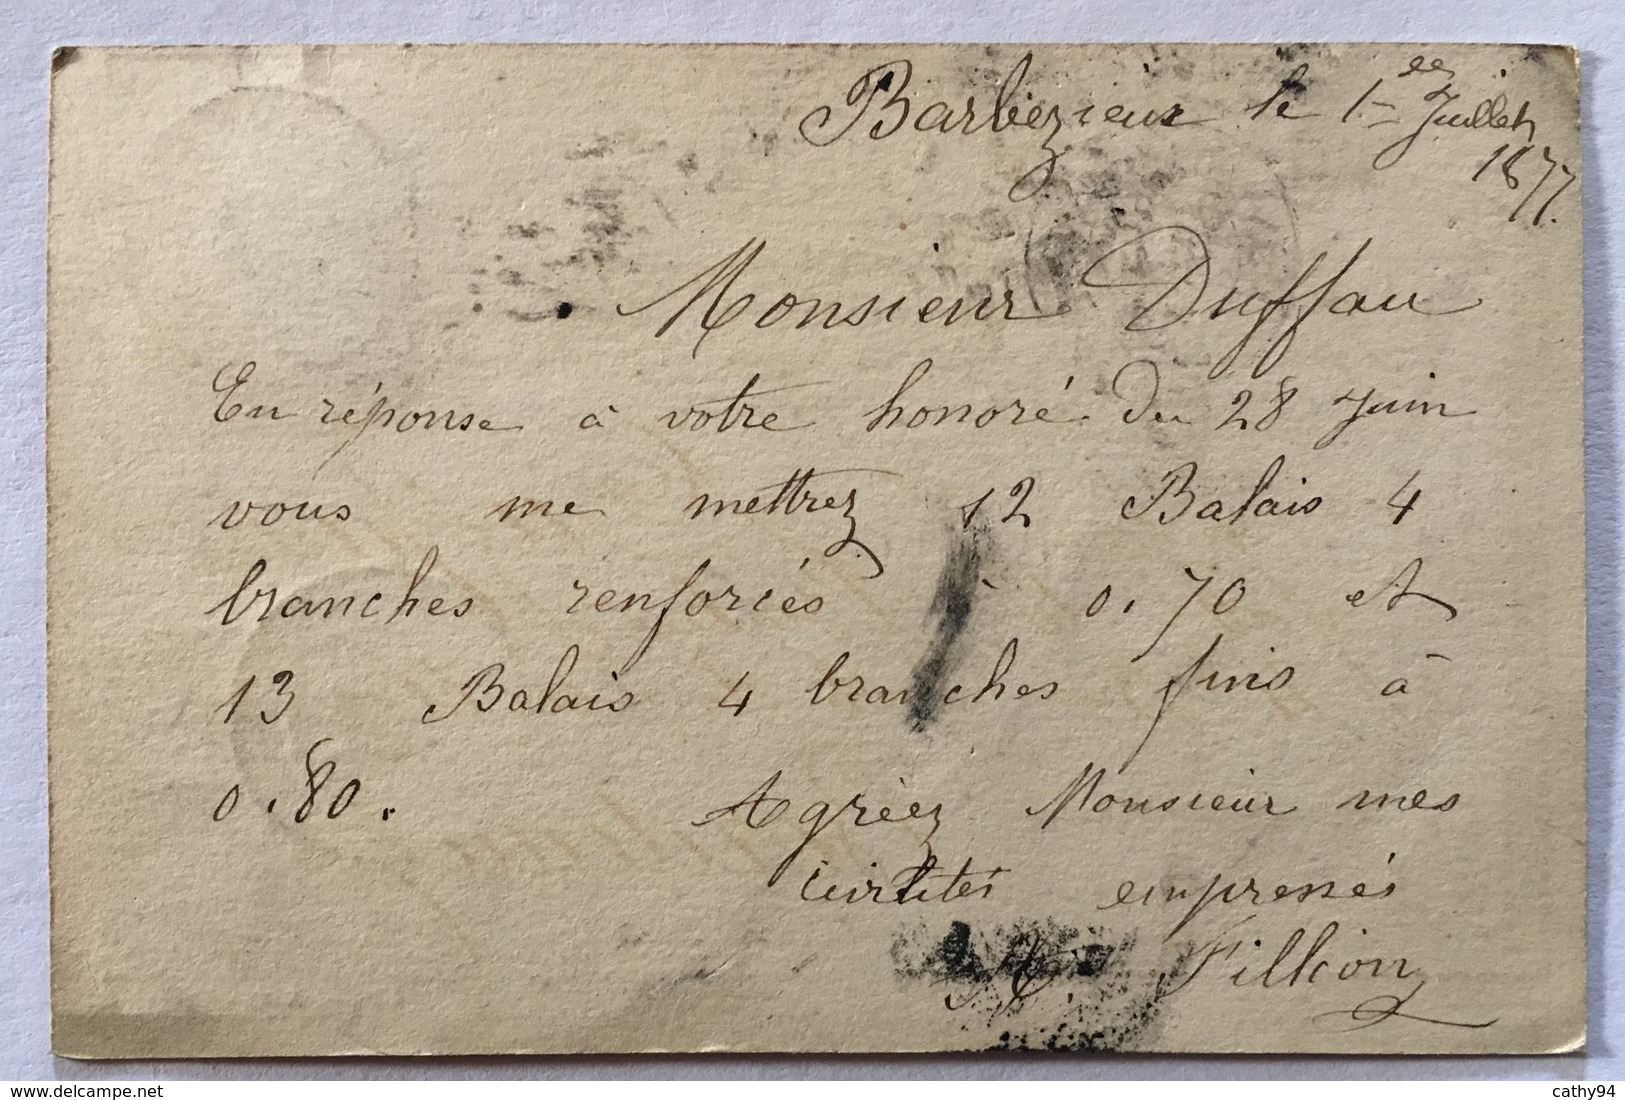 Barbezieux le 1er Juillet
1877.
Monsieur Duffau
En réponse à votre honoré du 28 Juin
vous me mettrez 12 Balais 4
branches renforcés à 0.70 et
13 Balais 4 branches finis à
0.80. Agréez Monsieur mes
civilités empressés
Fillion
cathy94